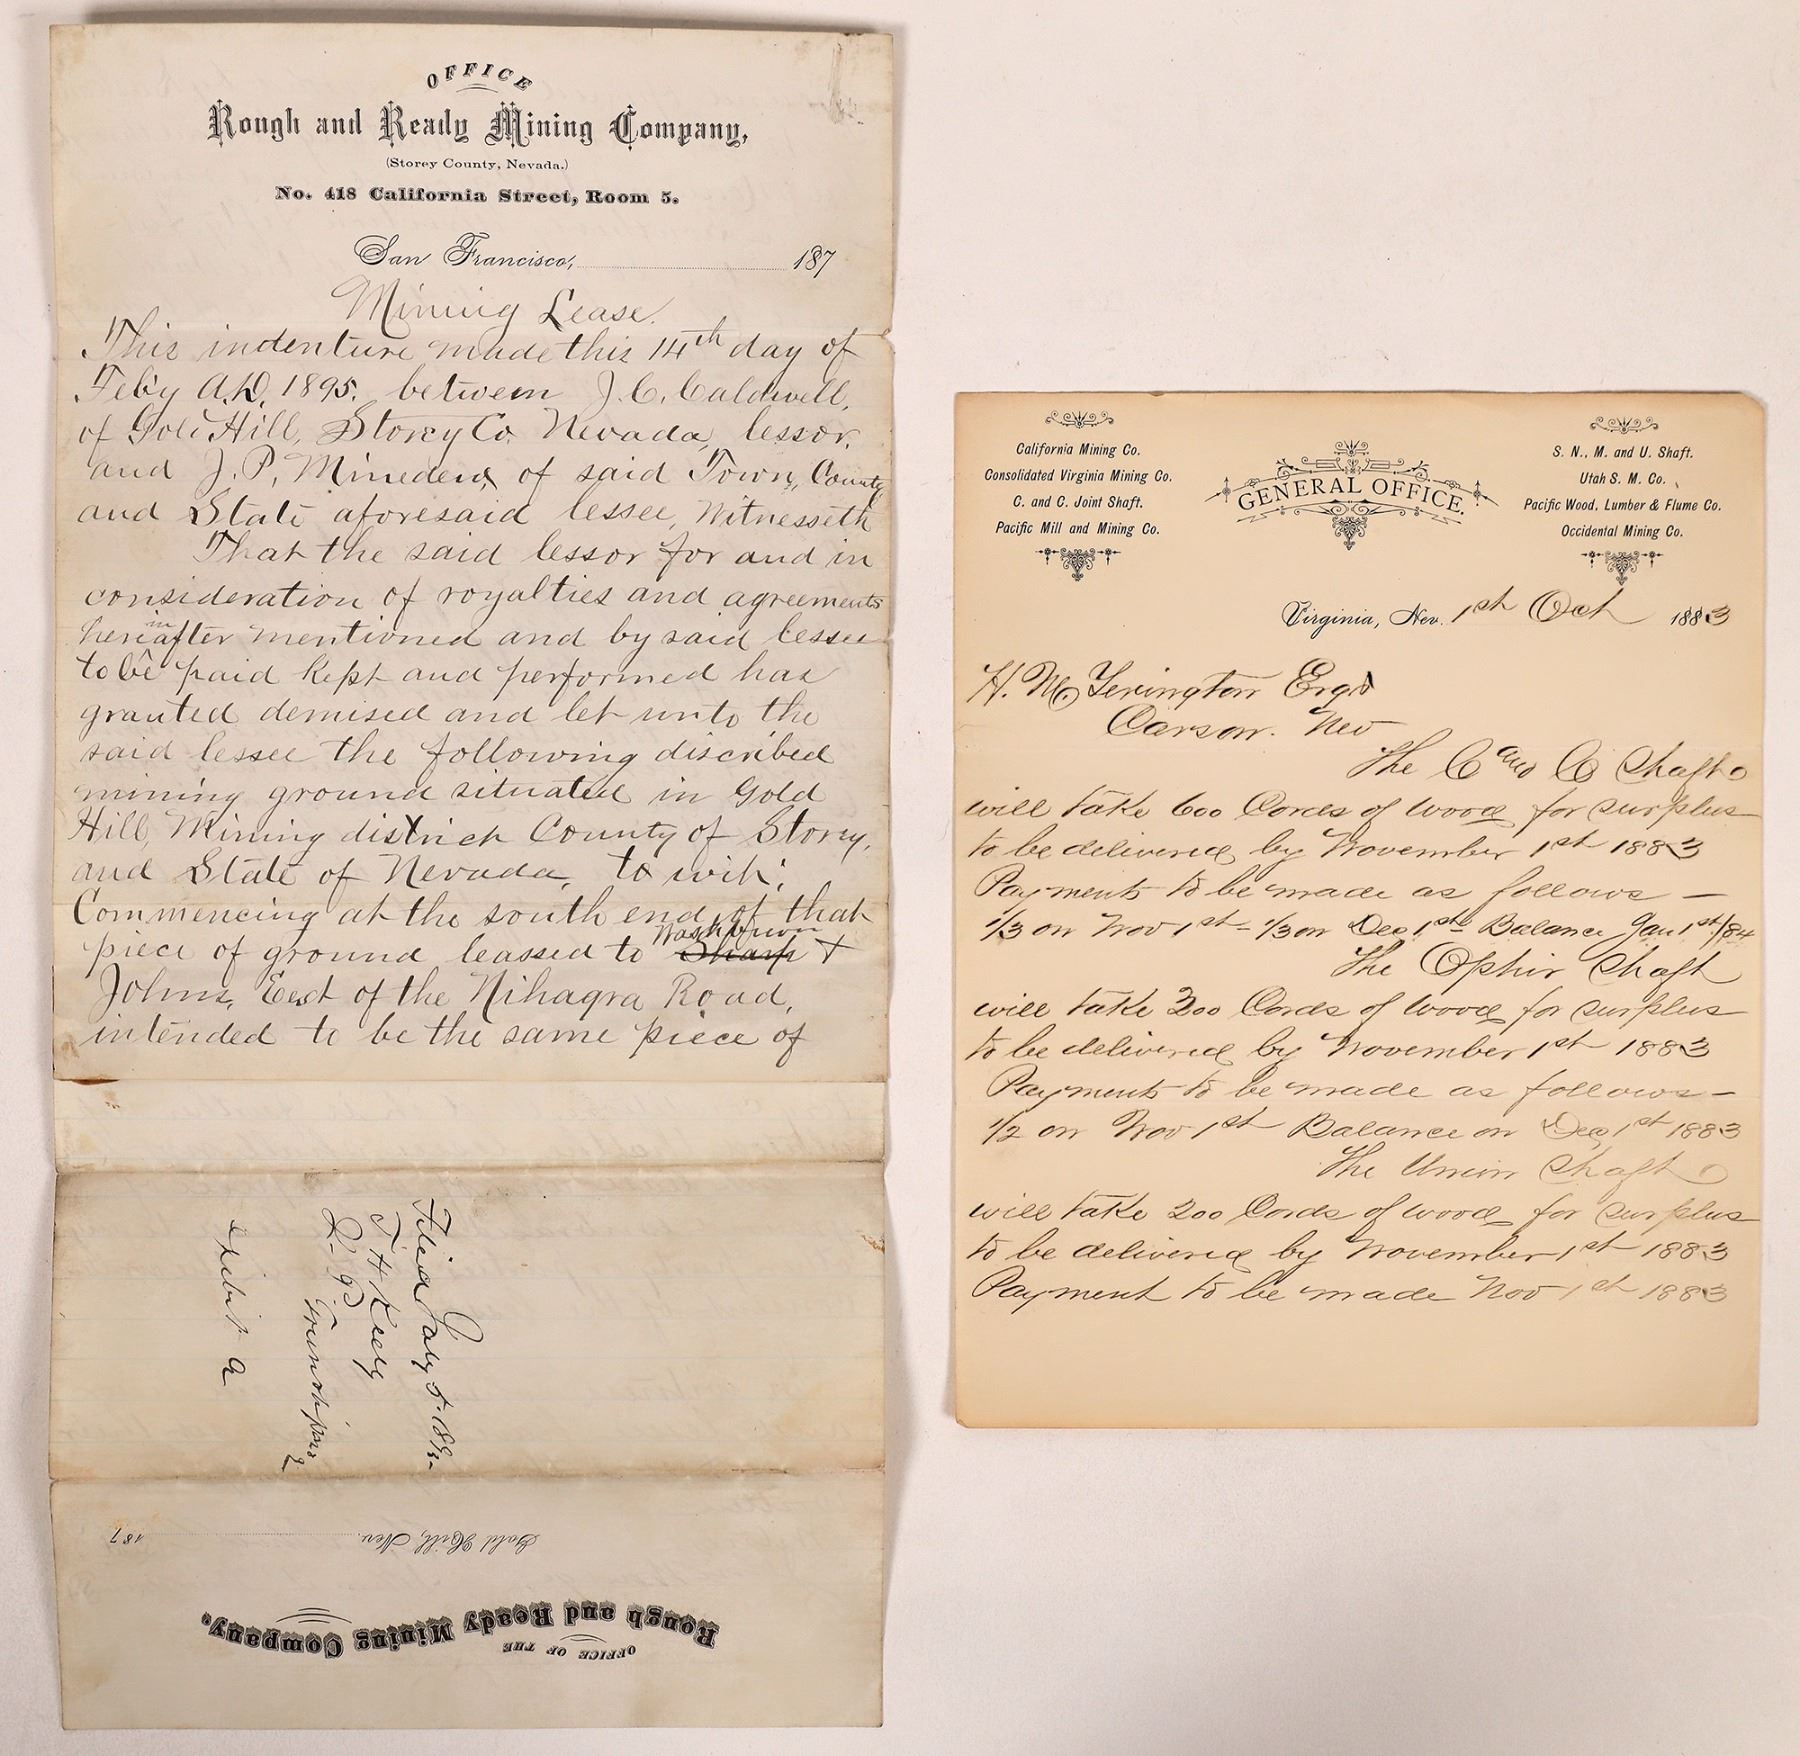 OFFICE
Rough and Ready Mining Company,
(Storey County, Nevada.)
No. 418 California Street, Room 5.
San Francisco, 187
Mining Lease.
This indenture made this 14th day of
Feby A.D. 1895. between J. C. Caldwell,
of Gold Hill, Storey Co. Nevada, lessor,
and J. P. of said Town, County
and State aforesaid lessee, Witnesseth
That the said lessor for and in
consideration of royalties and agreements
hereinafter mentioned and by said lessee
to be paid kept and performed has
granted demised and let unto the
said lessee the following discribed
mining ground situated in Gold
Hill, Mining district County of Storey,
and State of Nevada, to wit;
Commencing at the south end of that
piece of ground leassed to Washburn Sharp &
Johns, East of the Nihagra Road,
intended to be the same piece of
Filed
exibit a
Gold Hill, Nev. 187
OFFICE OF THE
Rough and Ready Mining Company.
California Mining Co.
Consolidated Virginia Mining Co.
C. and C. Joint Shaft.
Pacific Mill and Mining Co.
GENERAL OFFICE.
S. N., M. and U. Shaft.
Utah S. M. Co.
Pacific Wood, Lumber & Flume Co.
Occidental Mining Co.
Virginia, Nev. 1st Oct 1883
H. M. Yerington Esqr
Carson. Nev
The C and C Shaft
will take 600 Cords of wood for surplus
to be delivered by November 1st 1883
Payments to be made as follows —
1/3 on Nov 1st - 1/3 on Dec 1st Balance Jan 1st/84
The Ophir Shaft
will take 300 Cords of wood for surplus
to be delivered by November 1st 1883
Payments to be made as follows —
1/2 on Nov 1st Balance on Dec 1st 1883
The Union Shaft
will take 200 Cords of wood for surplus
to be delivered by November 1st 1883
Payment to be made Nov 1st 1883